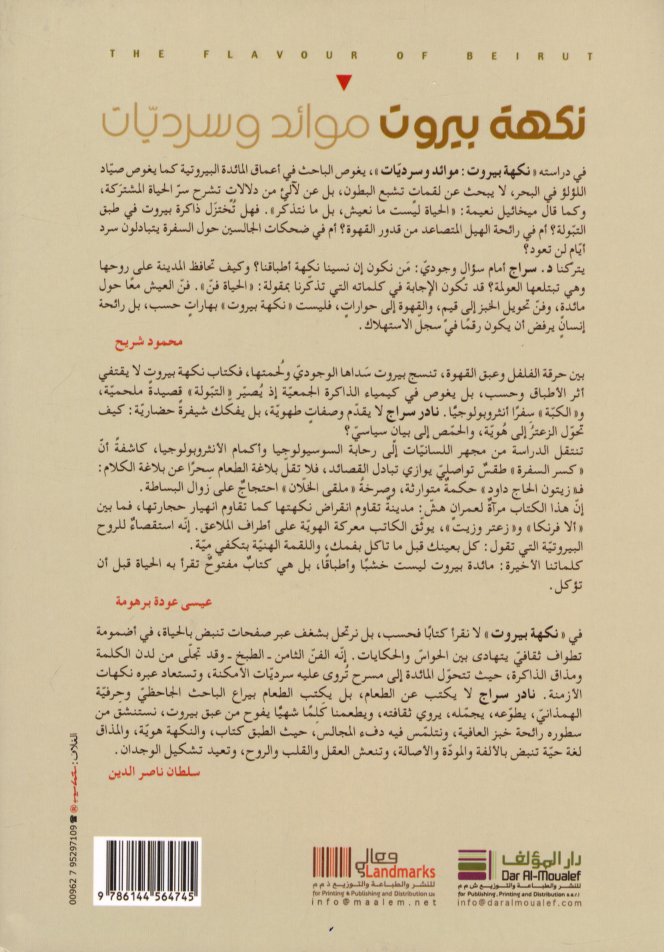 THE FLAVOUR OF BEIRUT
نكهة بيروت موائد وسرديّات
في دراسته «نكهة بيروت: موائد وسرديّات»، يغوص الباحث في أعماق المائدة البيروتية كما يغوص صيّاد
اللؤلؤ في البحر، لا يبحث عن لقماتٍ تشبع البطون، بل عن لآلئَ من دلالاتٍ تشرح سرّ الحياة المشتركة،
وكما قال ميخائيل نعيمة: «الحياة ليست ما نعيش، بل ما نتذكّر». فهل تُختزَل ذاكرة بيروت في طبق
التبّولة؟ أم في رائحة الهيل المتصاعد من قدور القهوة؟ أم في ضحكات الجالسين حول السفرة يتبادلون سرد
أيّام لن تعود؟
يتركنا د. سراج أمام سؤالٍ وجوديّ: مَن نكون إن نسينا نكهة أطباقنا؟ وكيف تحافظ المدينة على روحها
وهي تبتلعها العولمة؟ قد تكون الإجابة في كلماته التي تذكّرنا بمقولة: «الحياة فنّ». فنّ العيش معًا حول
مائدةٍ، وفنّ تحويل الخبز إلى قيم، والقهوة إلى حواراتٍ، فليست «نكهة بيروت» بهاراتٍ حسب، بل رائحة
إنسانٍ يرفض أن يكون رقمًا في سجلّ الاستهلاك.
محمود شريح
بين حرقة الفلفل وعبق القهوة، تنسج بيروت سَداها الوجوديّ ولُحمتها، فكتاب نكهة بيروت لا يقتفي
أثر الأطباق وحسب، بل يغوص في كيمياء الذاكرة الجمعيّة إذ يُصيّر «التبّولة» قصيدةً ملحميّة،
و«الكبّة» سفرًا أنثروبولوجيًا. نادر سراج لا يقدّم وصفاتٍ طهويّة، بل يفكّك شيفرةً حضاريّة: كيف
تحوّل الزعترُ إلى هُويّة، والحمّص إلى بيانٍ سياسيّ؟
تنتقل الدراسة من مجهر اللسانيّات إلى رحابة السوسيولوجيا وأكمام الأنثروبولوجيا، كاشفةً أنّ
«كسر السفرة» طقسٌ تواصليّ يوازي تبادل القصائد، فلا تقلّ بلاغة الطعام سِحرًا عن بلاغة الكلام:
فـ«زيتون الحاج داود» حكمةٌ متوارثة، وصرخةُ «ملقى الخلّان» احتجاجٌ على زوال البساطة.
إنّ هذا الكتاب مرآةٌ لعمرانٍ هشّ: مدينةٌ تقاوم انقراض نكهتها كما تقاوم انهيار حجارتها، فما بين
«ألا فرنكا» و«زعتر وزيت»، يوثّق الكاتب معركة الهويّة على أطراف الملاعق. إنّه استقصاءٌ للروح
البيروتيّة التي تقول: كل بعينك قبل ما تاكل بفمك، واللقمة الهنيّة بتكفي ميّة.
كلماتنا الأخيرة: مائدة بيروت ليست خشبًا وأطباقًا، بل هي كتابٌ مفتوحٌ تقرأ به الحياة قبل أن
تؤكل.
عيسى عودة برهومة
في «نكهة بيروت» لا نقرأ كتابًا فحسب، بل نرتحل بشغف عبر صفحات تنبض بالحياة، في أضمومة
تطواف ثقافيّ يتهادى بين الحواسّ والحكايات. إنّه الفنّ الثامن ـ الطبخ ـ وقد تجلّى من لدن الكلمة
ومذاق الذاكرة، حيث تتحوّل المائدة إلى مسرح تُروى عليه سرديّات الأمكنة، وتستعاد عبره نكهات
الأزمنة. نادر سراج لا يكتب عن الطعام، بل يكتب الطعام بيراع الباحث الجاحظيّ وحِرفيّة
الهمذانيّ، يطوّعه، يجمّله، يروي ثقافته، ويطعمنا كَلِمًا شهيًّا يفوح من عبق بيروت، نستنشق من
سطوره رائحة خبز العافية، ونتلمّس فيه دفء المجالس، حيث الطبق كتاب، والنكهة هويّة، والمذاق
لغة حيّة تنبض بالألفة والمودّة والأصالة، وتنعش العقل والقلب والروح، وتعيد تشكيل الوجدان.
سلطان ناصر الدين
الغلاف:
00962 7 95297109
9 786144 564745
معالم
Landmarks
للنشر والطباعة والتوزيع ذ م م
for Printing & Publishing and Distribution us
info@maalem.net
دار المؤلف
Dar Al-Moualef
للنشر والطباعة والتوزيع ش م م
for Publishing, Printing and Distribution s.a.r.l
info@daralmoualef.com